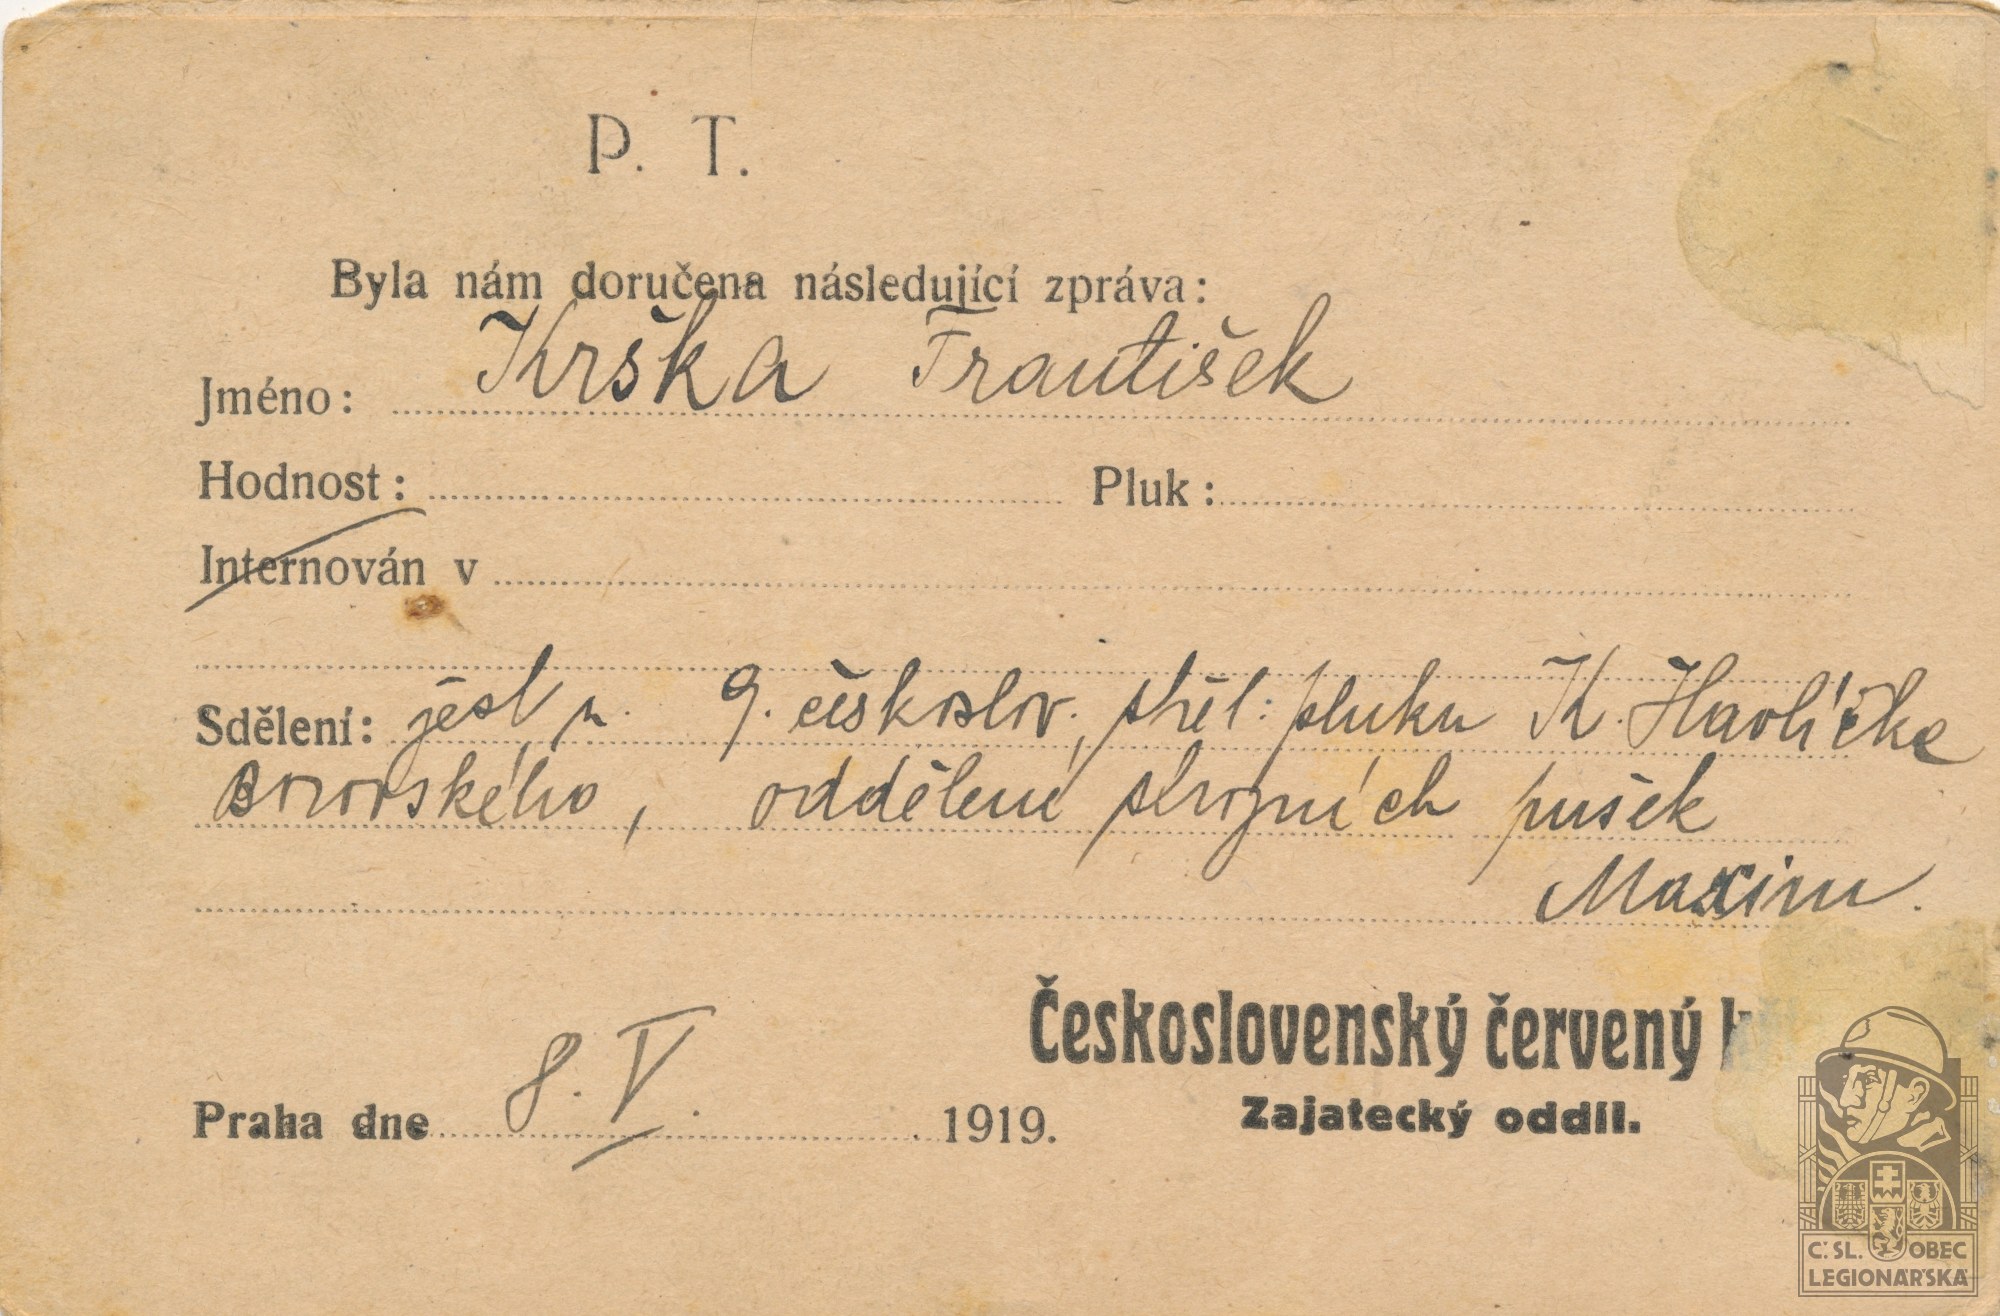 P. T.
Byla nám doručena následující zpráva:
Jméno: Krška František
Hodnost: Pluk:
Internován v
Sdělení: jest u 9. českoslov. střel: pluku K. Havlíčka
Borovského, oddělení strojních pušek
Maxim.
Československý červený
Praha dne 8. V. 1919.
Zajatecký oddíl.
Č.SL. OBEC
LEGIONÁŘSKÁ